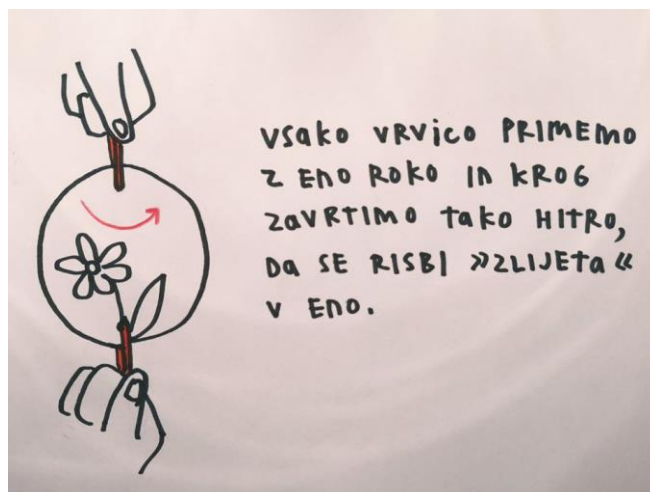 VSAKO VRVICO PRIMEMO
Z ENO ROKO IN KROG
ZAVRTIMO TAKO HITRO,
DA SE RISBI »ZLIJETA«
V ENO.